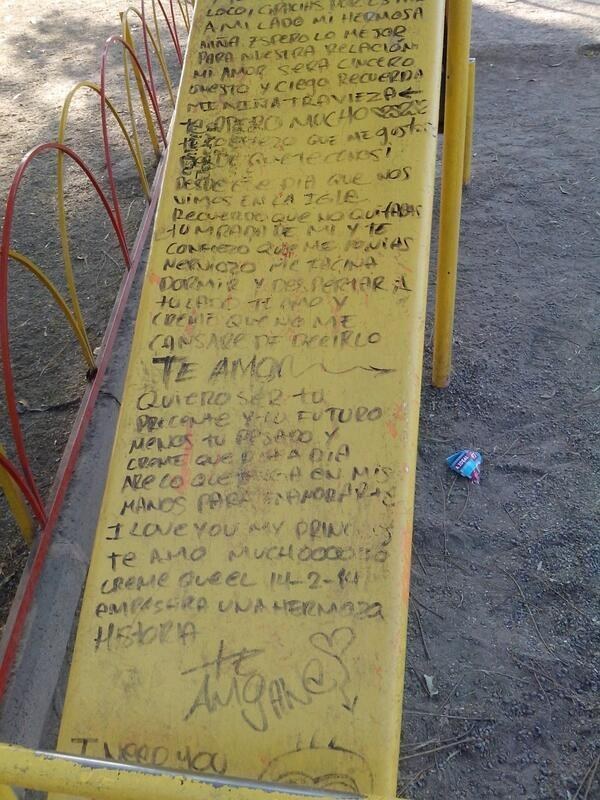 LOCO! GRACIAS POR ESTAR
A MI LADO MI HERMOSA
NIÑA. ESPERO LO MEJOR
PARA NUESTRA RELACIÓN
MI AMOR SERA CINCERO
ONESTO Y CIEGO RECUERDA
MI NIÑA TRAVIEZA
TE QUIERO MUCHO
QUE ME GUSTAS
DESDE QUE TE CONOSI
DESDE ESE DIA QUE NOS
VIMOS EN LA IGLE
RECUERDO QUE NO QUITABAS
TU MIRADA DE MI Y TE
CONFIEZO QUE ME PONIAS
NERVIOZO ME FACINA
DORMIR Y DESPERTAR A
TU LADO TE AMO Y
CREME QUE NO ME
CANSARE DE DECIRLO
TE AMO
QUIERO SER TU
PRECENTE Y TU FUTURO
MENOS TU PASADO Y
CREME QUE DIA A DIA
ARE LO QUE EN MIS
MANOS PARA ENAMORARTE
I LOVE YOU MY PRINC
TE AMO MUCHOOOOOO
CREME QUE EL 14-2-14
EMPESERA UNA HERMOZA
HISTORIA
TE
AM
I NEED YOU